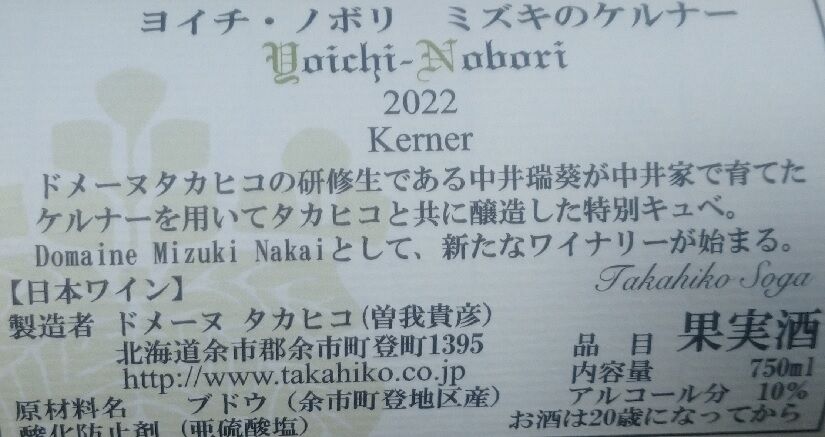 ヨイチ・ノボリ　ミズキのケルナー
Yoichi-Nobori
2022
Kerner
ドメーヌタカヒコの研修生である中井瑞葵が中井家で育てた
ケルナーを用いてタカヒコと共に醸造した特別キュベ。
Domaine Mizuki Nakaiとして、新たなワイナリーが始まる。
Takahiko Soga
【日本ワイン】
製造者 ドメーヌ タカヒコ(曽我貴彦)
北海道余市郡余市町登町1395
http://www.takahiko.co.jp
原材料名　ブドウ（余市町登地区産）
酸化防止剤（亜硫酸塩）
品目 果実酒
内容量 750ml
アルコール分 10%
お酒は20歳になってから